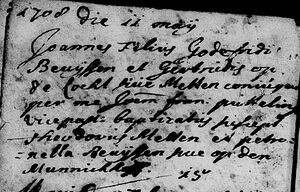 1708 die 11 maij
Joannes Filius Godefridi
Beuijssen et Gertrudis op
de Locht sive Metten conjugum
per me Joem Fran:
vicepast: baptizatus
Theodorus Metten et petro-
nella Beuijssen sive op den
Munnickhof